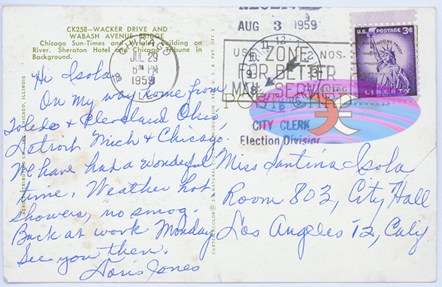 CK258—WACKER DRIVE AND
WABASH AVENUE BRIDGE
Chicago Sun-Times and Building on
River. Sheraton Hotel and Chicago Tribune in
Background.
Hi Isola,
On my way home from
Toledo & Cleveland Ohio
Detroit Mich & Chicago.
We have had a wonderful
time. Weather hot
showers, no smog.
Back at work Monday
See you then.
Doris Jones
JUL 29
PM
1959
AUG 3 1959
USE ZONE NOS.
FOR BETTER
MAIL SERVICE
POST CARD
CITY CLERK
Election Division
U.S. POSTAGE
3¢
LIBERTY
天
Miss Santina Isola,
Room 803, City Hall
Los Angeles 12, Calif